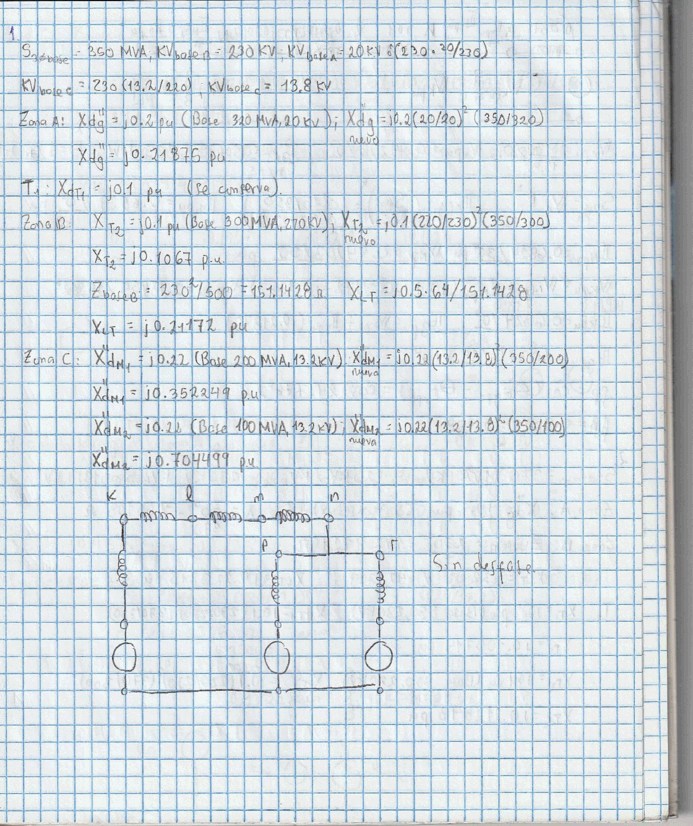 1
S3φbase = 350 MVA, KVbase B = 230 KV, KVbase A = 20 KV (230·20/230)
KVbase C = 230 (13.2/220), KVbase C = 13.8 KV
Zona A: X"dg = j0.2 pu (Base 320 MVA, 20 KV); X"dg nuevo = j0.2 (20/20)² (350/320)
X"dg = j0.21875 pu
T1: XdT1 = j0.1 pu (se conserva).
Zona B: XT2 = j0.1 pu (Base 300 MVA, 220 KV); XT2 nuevo = j0.1 (220/230)² (350/300)
XT2 = j0.1067 p.u.
Zbase B = 230²/500 = 151.1428 Ω XLT = j0.5·64/151.1428
XLT = j0.21172 pu
Zona C: X"dM1 = j0.22 (Base 200 MVA, 13.2 KV) X"dM1 nueva = j0.22 (13.2/13.8)² (350/200)
X"dM1 = j0.352249 p.u
X"dM2 = j0.22 (Base 100 MVA, 13.2 KV); X"dM2 nueva = j0.22 (13.2/13.8)² (350/100)
X"dM2 = j0.704499 p.u
K l m n
p r Sin desfase.